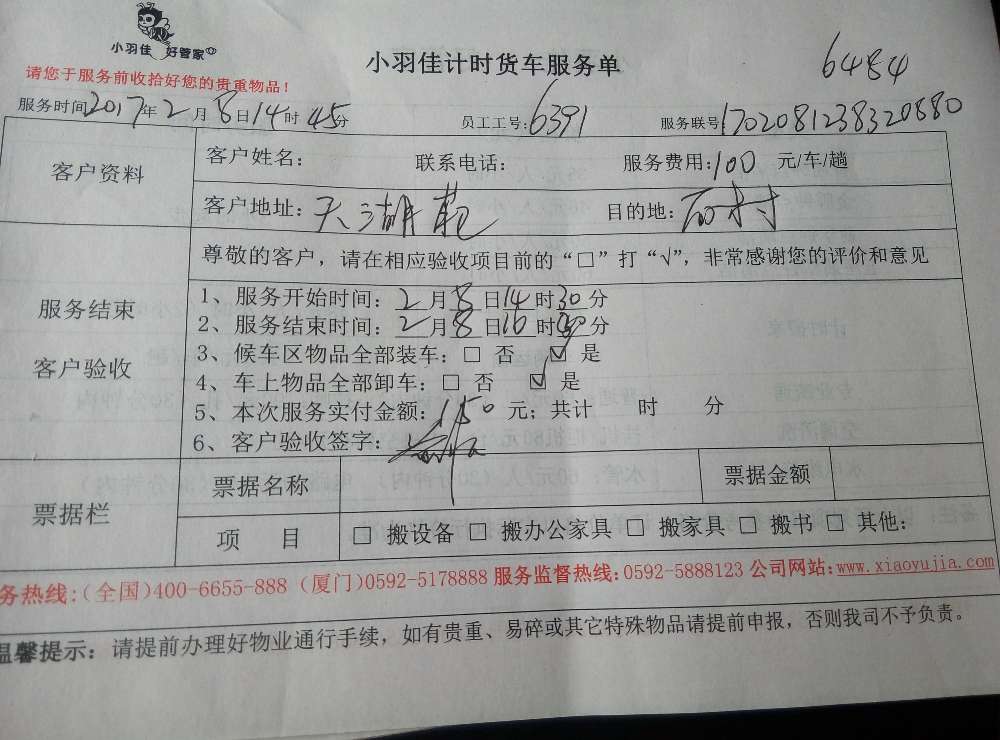 小羽佳 好管家
小羽佳计时货车服务单
6484
请您于服务前收拾好您的贵重物品！
服务时间2017年2月8日14时45分 员工工号:6391 服务联号:1702081238320880
客户资料
客户姓名： 联系电话： 服务费用:100 元/车/趟
客户地址:天湖苑 目的地:石村
服务结束
客户验收
尊敬的客户，请在相应验收项目前的“□”打“√”，非常感谢您的评价和意见
1、服务开始时间：2月8日14时30分
2、服务结束时间：2月8日16时分
3、候车区物品全部装车：□ 否 ☑ 是
4、车上物品全部卸车：□ 否 ☑ 是
5、本次服务实付金额：150元；共计 时 分
6、客户验收签字：
票据栏
票据名称 票据金额
项 目 □ 搬设备 □ 搬办公家具 □ 搬家具 □ 搬书 □ 其他：
务热线:(全国)400-6655-888 (厦门)0592-5178888 服务监督热线:0592-5888123 公司网站:www.xiaoyujia.com
温馨提示：请提前办理好物业通行手续，如有贵重、易碎或其它特殊物品请提前申报，否则我司不予负责。